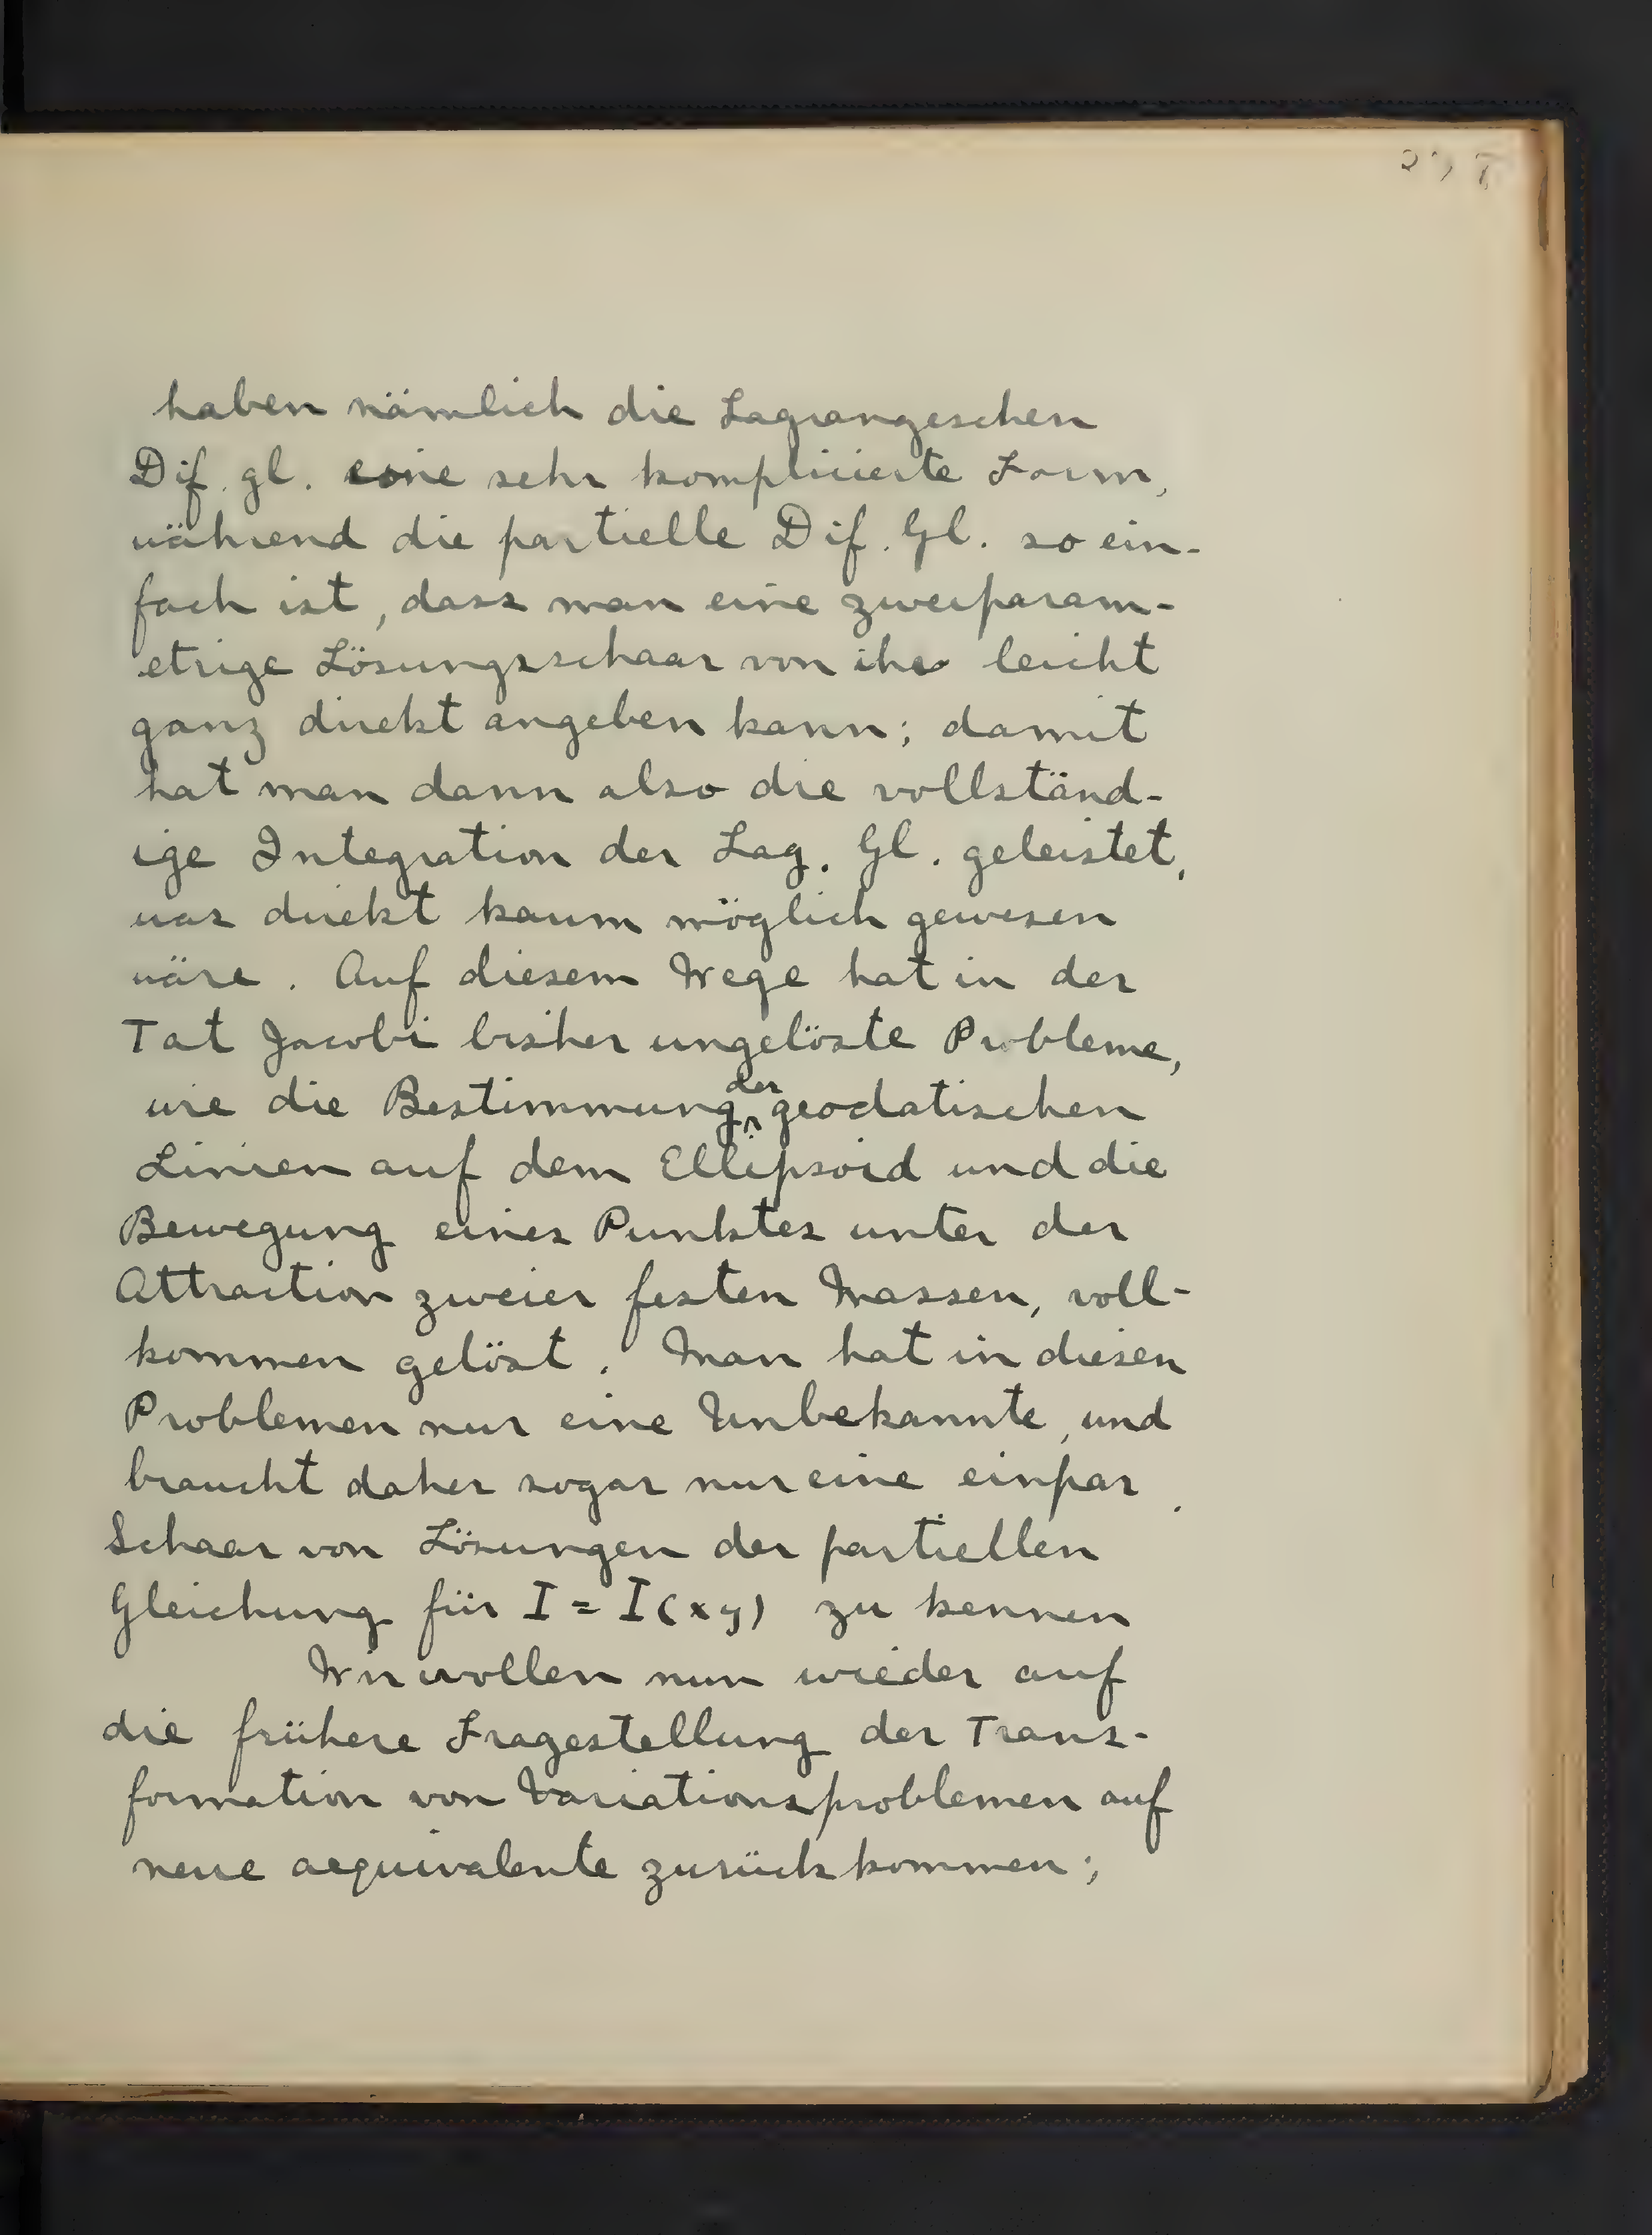 haben nämlich die Lagrangeschen
Dif. gl. eine sehr komplicierte Form,
während die partielle Dif. Gl. so ein-
fach ist, dass man eine zweiparam-
etrige Lösungsschaar von ihr leicht
ganz direkt angeben kann; damit
hat man dann also die vollständ-
ige Integration der Lag. Gl. geleistet,
was direkt kaum möglich gewesen
wäre. Auf diesem Wege hat in der
Tat Jacobi bisher ungelöste Probleme,
wie die Bestimmung der geodatischen
Linien auf dem Ellipsoid und die
Bewegung eines Punktes unter der
Attraction zweier festen Massen, voll-
kommen gelöst. Man hat in diesen
Problemen nur eine Unbekannte, und
braucht daher sogar nur eine einpar.
Schaar von Lösungen der partiellen
Gleichung für I = I(xy) zu kennen
Wir wollen nun wieder auf
die frühere Fragestellung der Trans-
formation von Variationsproblemen auf
neue aequivalente zurückkommen;